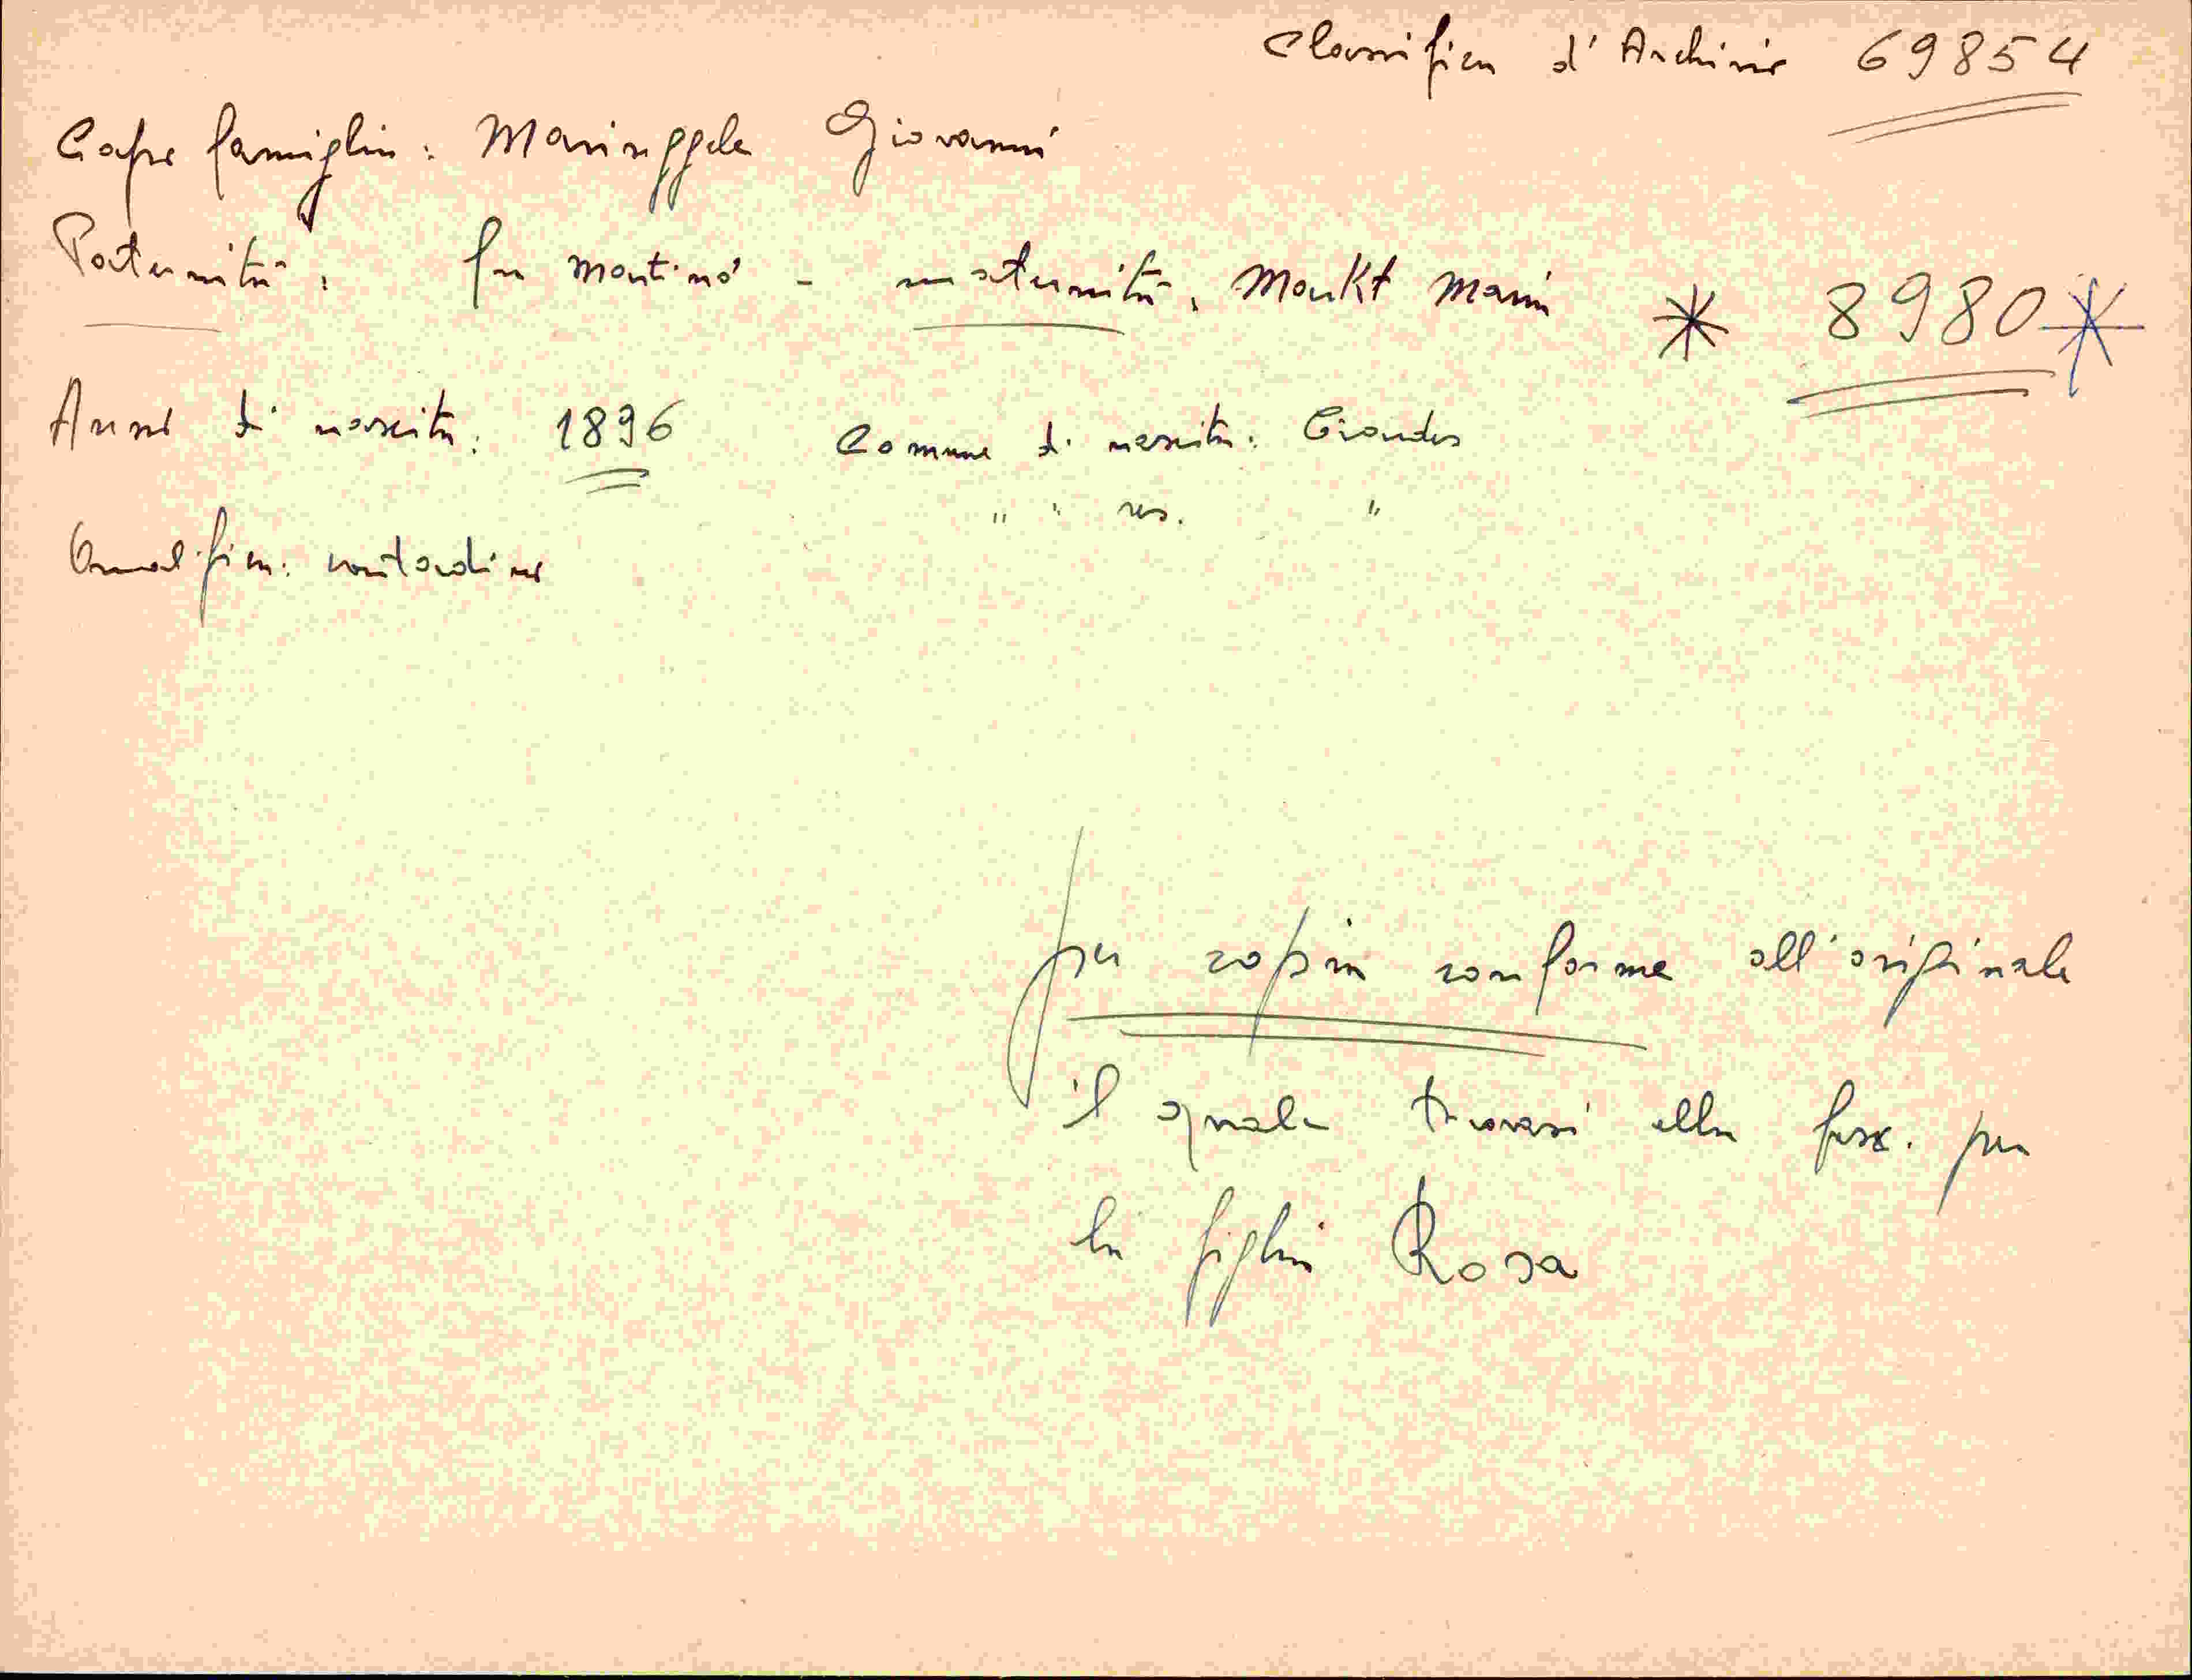 Classifica d'Archivio 69854
Capo famiglia: Maringgele Giovanni
Paternità: fu Martino - maternità: Markt Maria * 8980 *
Anno di nascita: 1896 Comune di nascita:
" " res. "
Qualifica: contadino
per copia conforme all'originale
il quale trovasi alla pos. per
la figlia Rosa